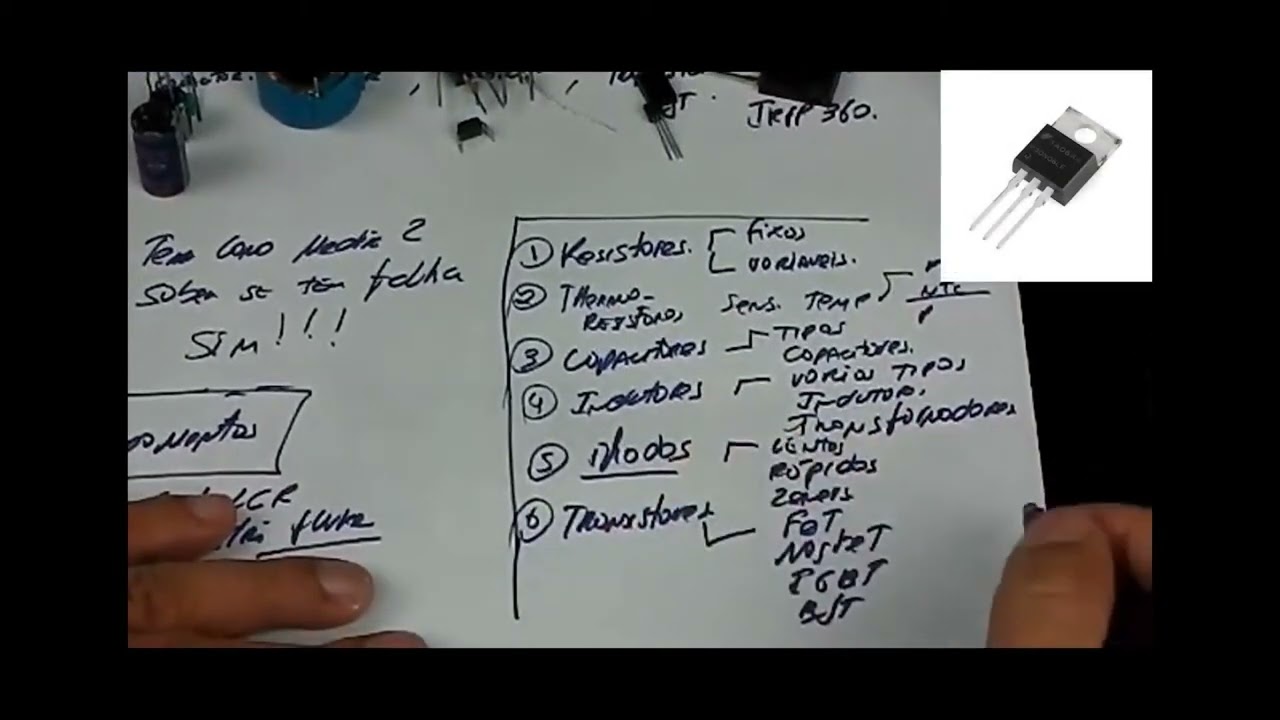 IRFP 360.
Tem como Medir ?
Saber se tem falha
SIM!!!
LCR
fluke
① Resistores. fixos
VARIAVEIS.
② THERMO-
RESISTORES SENS. TEMP
NTC
P
③ CAPACITORES TIPOS
CAPACITORES.
④ INDUTORES VARIOS TIPOS
INDUTOR.
TRANSFORMADORES
⑤ DIODOS LENTOS
RÁPIDOS
ZENERS
⑥ TRANSISTORES FET
MOSFET
IGBT
BJT